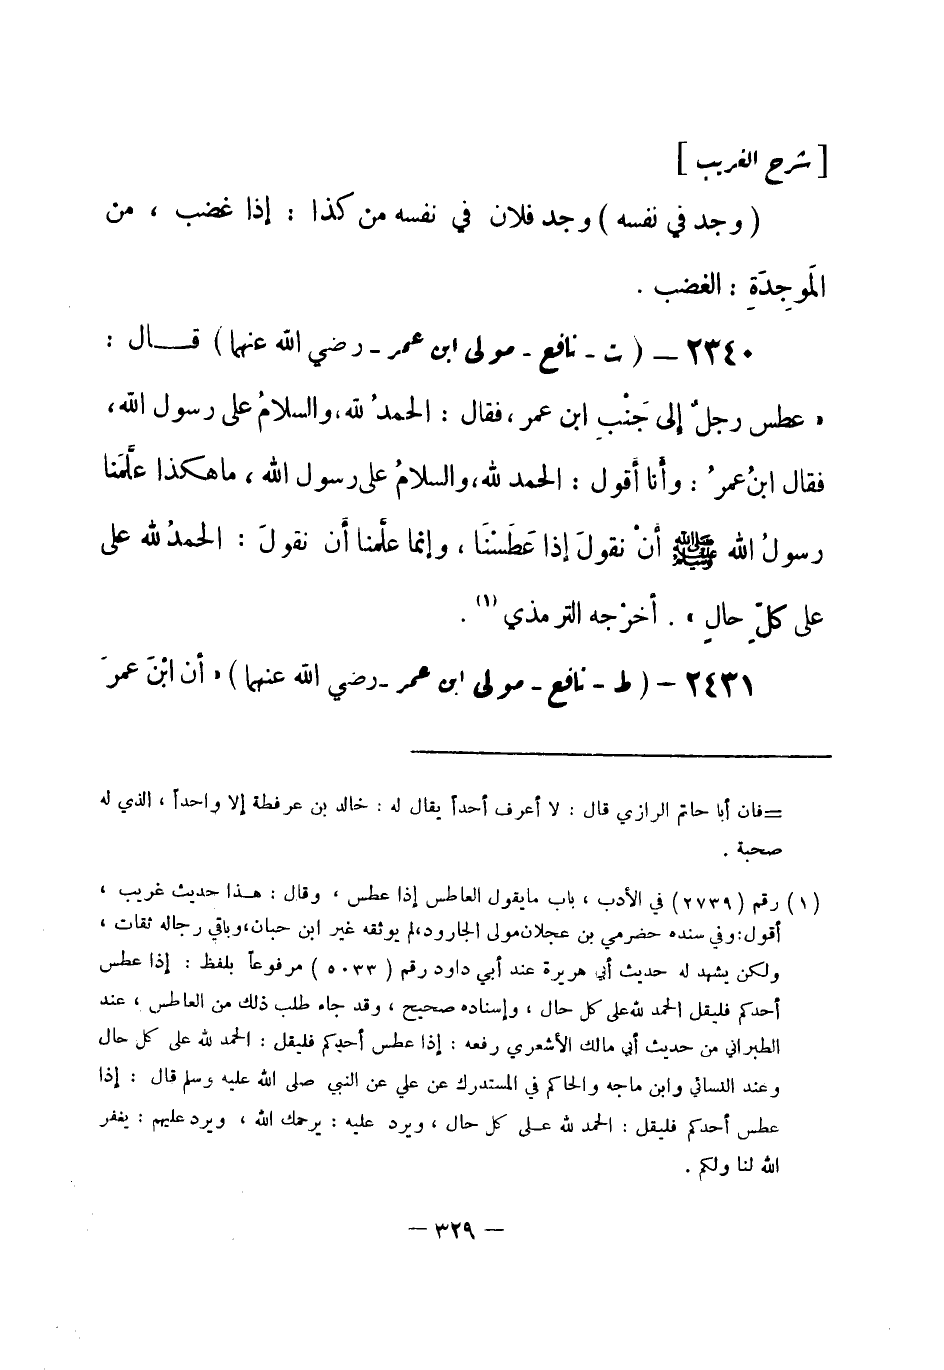 [ شرح الغريب ]
( وجد في نفسه ) وجد فلان في نفسه من كذا : إذا غضب ، من
المَوجِدَةِ : الغضب .
٢٣٤٠ – ( ت - نافع - مولى ابن عمر - رضي الله عنهما ) قـــال :
« عطس رجلٌ إلى جَنْبِ ابن عمر ، فقال : الحمدُ لله، والسلامُ على رسول الله،
فقال ابنُ عمرُ : وأنا أقول : الحمد لله، والسلامُ على رسول الله ، ما هكذا علَّمَنا
رسولُ الله ﷺ أنْ نقولَ إذا عَطَسْنَا ، وإنما علَّمنا أن نقولَ : الحمدُ لله على
على كلِّ حالٍ » . أخرْجه الترمذي (١) .
٢٤٣١ – ( ط - نافع - مولى ابن عمر - رضي الله عنهما ) « أن ابْنَ عمرَ
= فان أبا حاتم الرازي قال : لا أعرف أحداً يقال له : خالد بن عرفطة إلا واحداً ، الذي له
صحبة .
(١) رقم ( ٢٧٣٩ ) في الأدب ، باب مايقول العاطس إذا عطس ، وقال : هـذا حديث غريب ،
أقول: وفي سنده حضرمي بن عجلان مولى الجارود، لم يوثقه غير ابن حبان، وباقي رجاله ثقات ،
ولكن يشهد له حديث أبي هريرة عند أبي داود رقم ( ٥٠٣٣ ) مرفوعاً بلفظ : إذا عطس
أحدكم فليقل الحمد لله على كل حال ، وإسناده صحيح ، وقد جاء طلب ذلك من العاطس ، عند
الطبراني من حديث أبي مالك الأشعري رفعه : إذا عطس أحدكم فليقل : الحمد لله على كل حال
وعند النسائي وابن ماجه والحاكم في المستدرك عن علي عن النبي صلى الله عليه وسلم قال : إذا
عطس أحدكم فليقل : الحمد لله عـلى كل حال ، ويرد عليه : يرحمك الله ، ويرد عليهم : يغفر
الله لنا ولكم .
– ٣٢٩ –